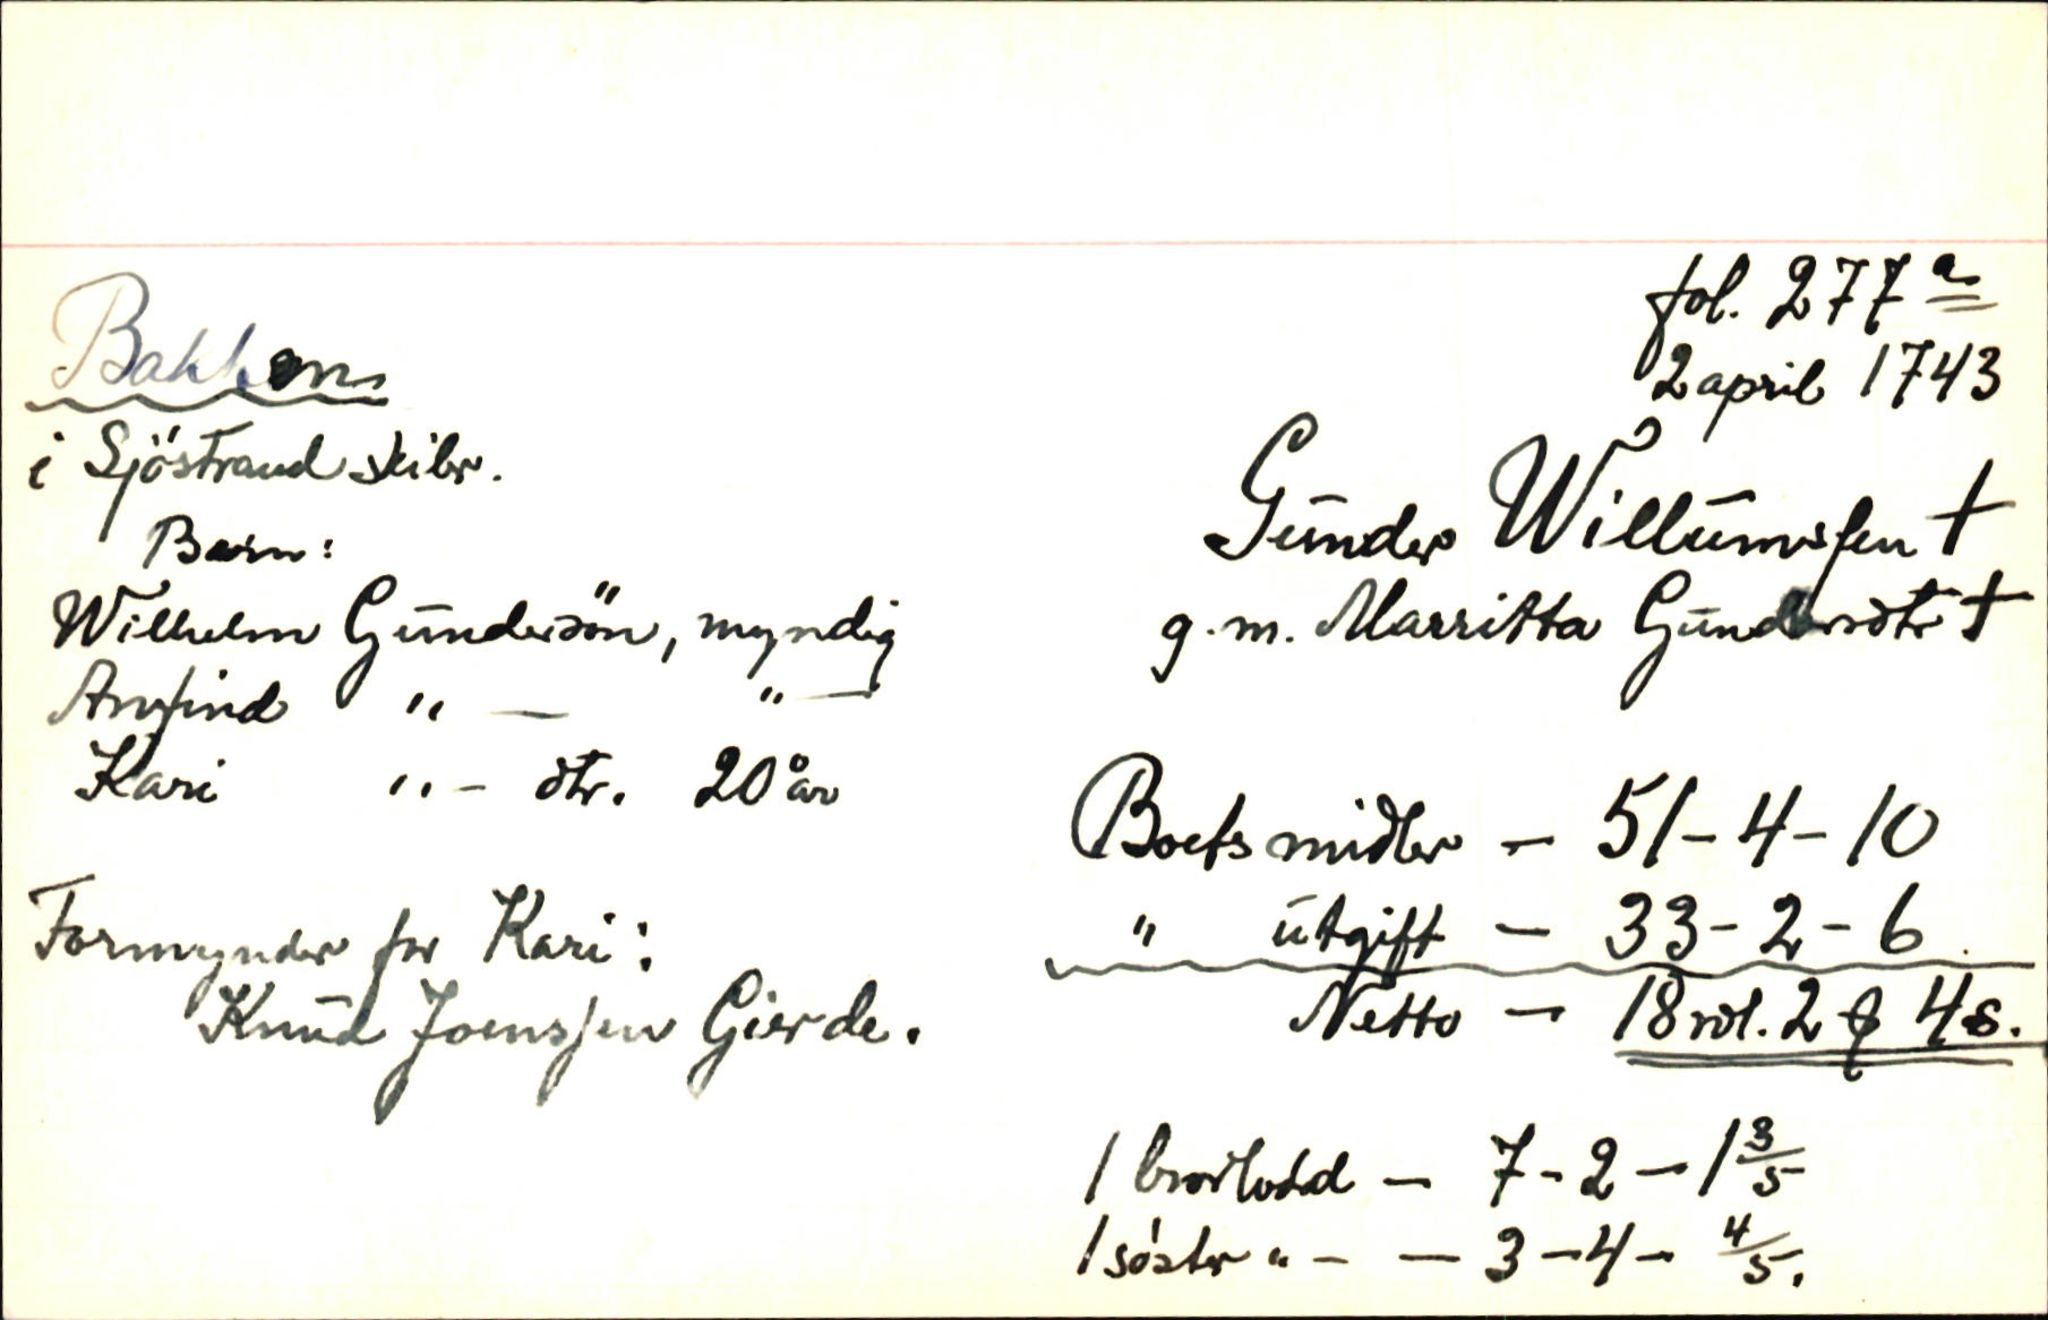 fol. 277 a
2 april 1743
Bakken
i Sjöstrand skibr.
Gunder Willumssen †
g.m. Marritta Gundersdtr †
Barn:
Wilhelm Gundersön, myndig
Arnfind " — " —
Kari " - dtr. 20 år
Formynder for Kari:
Knud Joenssen Gierde.
Boets midler — 51-4-10
" utgift — 33-2-6
Netto — 18 rdl. 2 ₰ 4 s.
1 brorlodd — 7-2-1 3/5
1 söster " - — 3-4- 4/5.